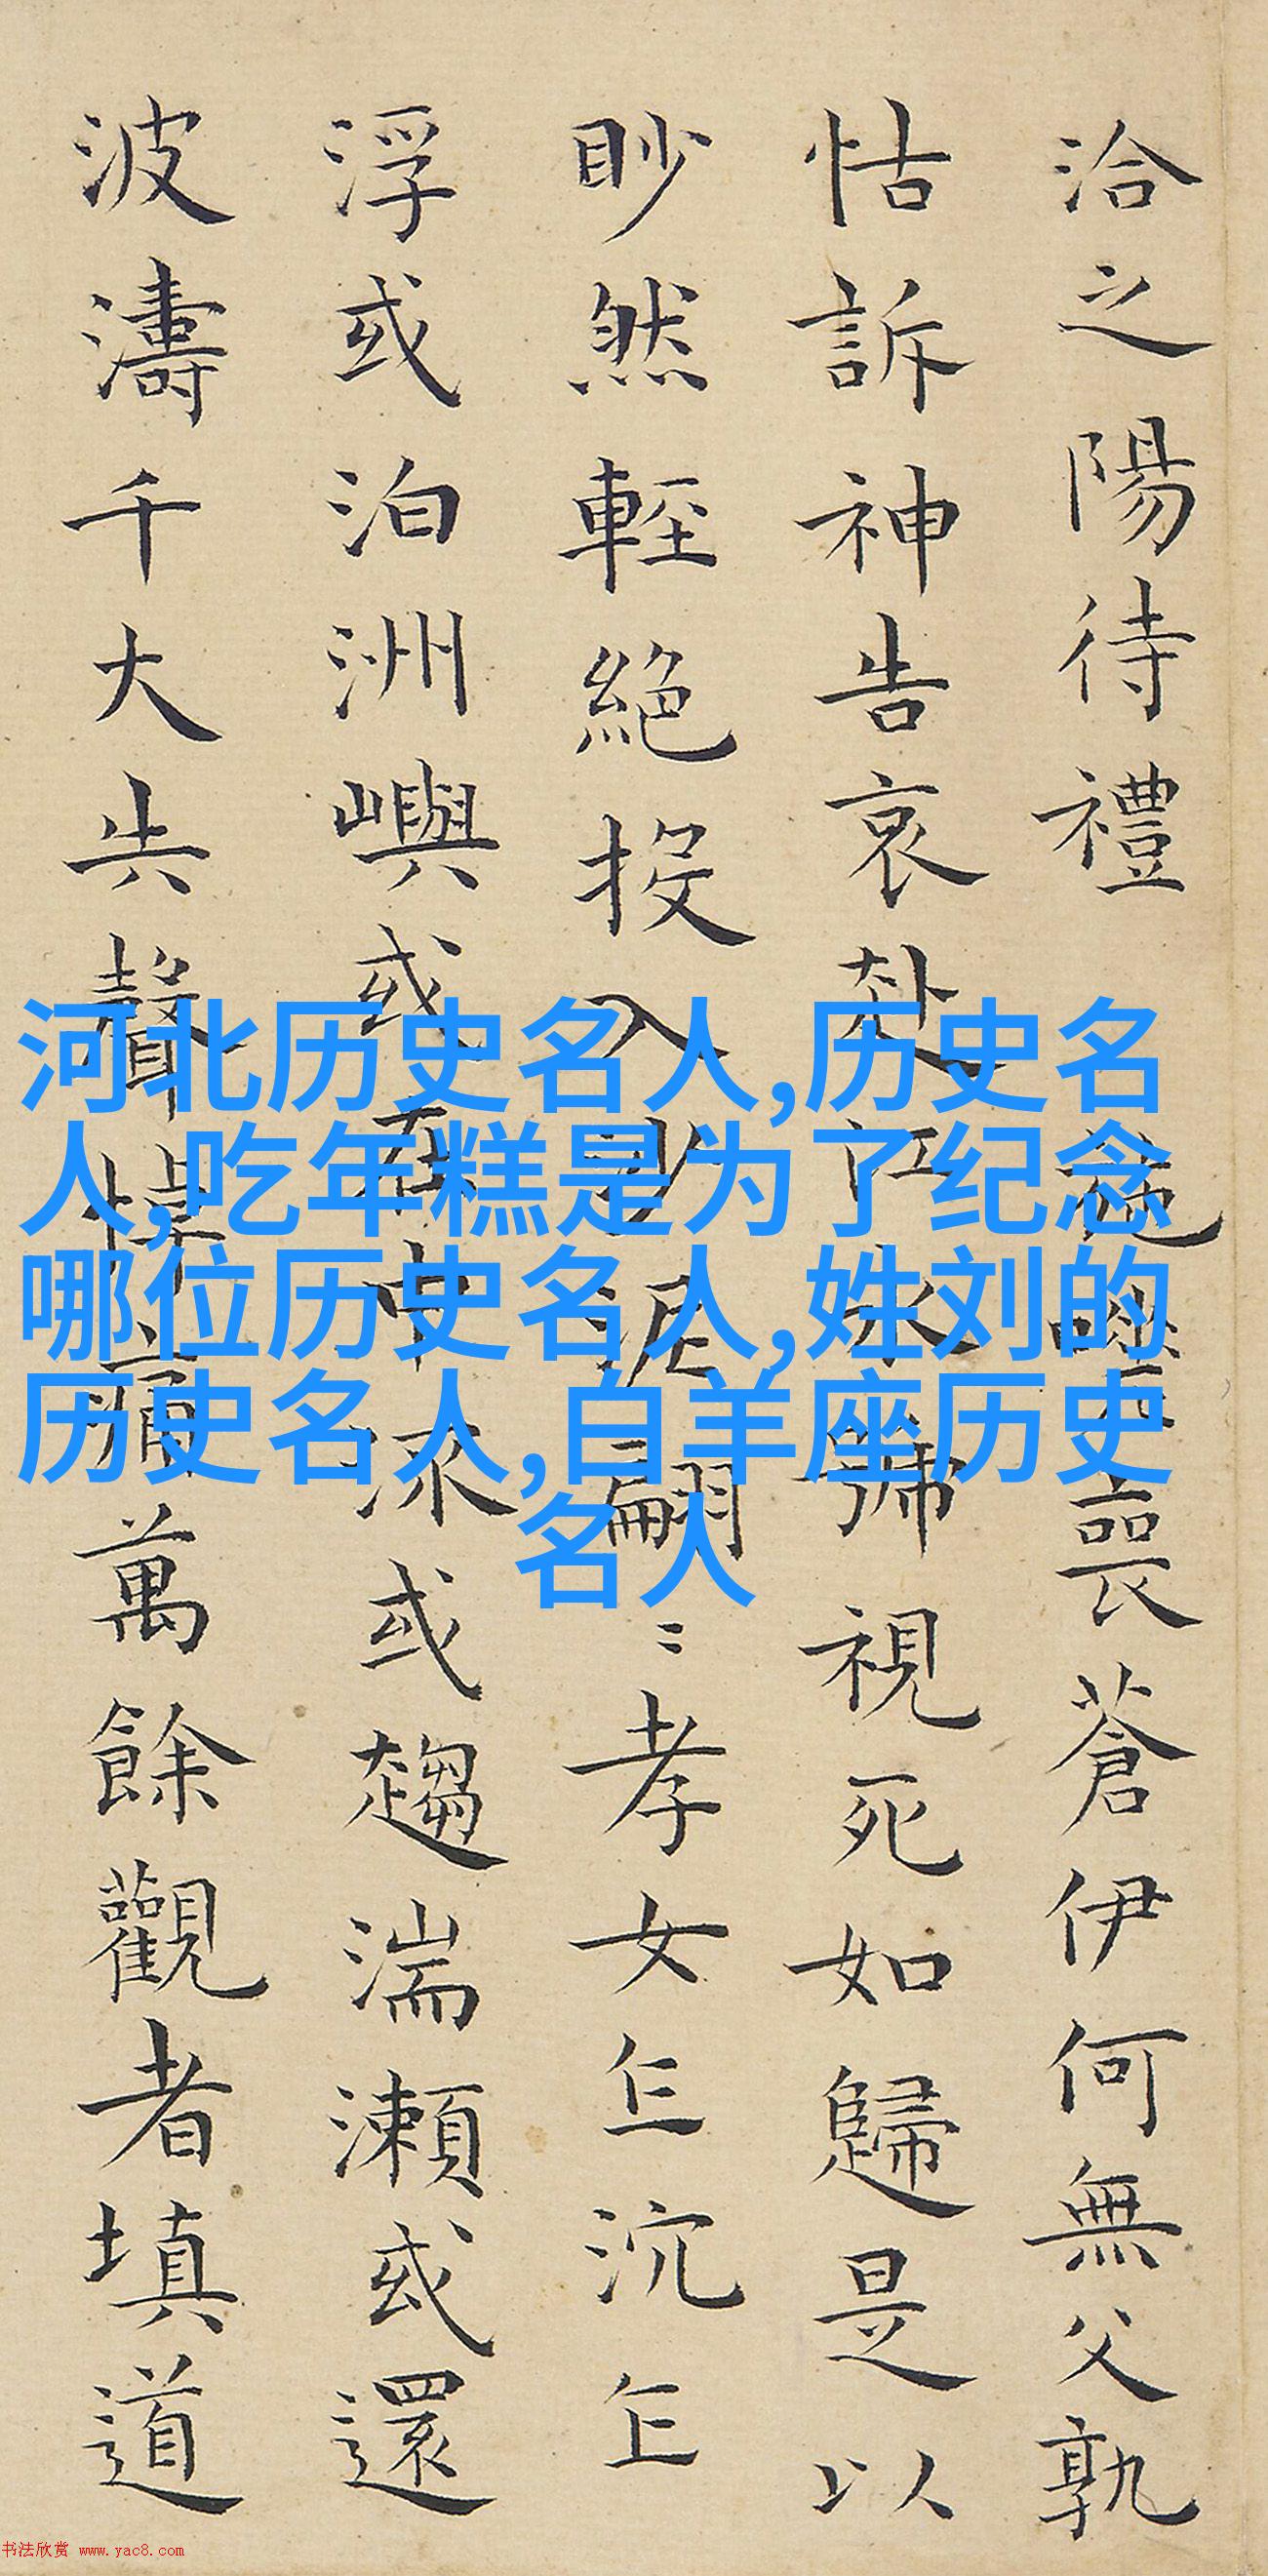 洽之陽待禮施嗟喪蒼伊何無父孰
怙訴神告哀赴江永號視死如歸是以
眇然輕絕投入沙泥翩〻孝女乍沉乍
浮或泊洲嶼或在中流或趨湍瀨或還
波濤千大失聲悼痛萬餘觀者填道
河北历史名人,历史名
人,吃年糕是为了纪念
哪位历史名人,姓刘的
历史名人,白羊座历史
名人
书法欣赏 www.yac8.com